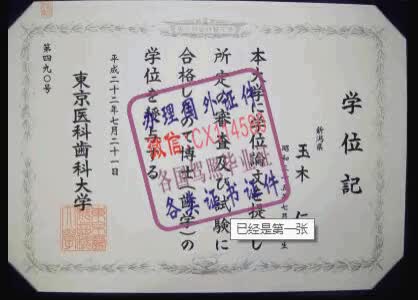 学位記
新潟県
玉木仁
本大学に学位論文を提出し
所定の審査及び試験に
合格したので博士（歯学）の
学位を授与する
平成二十二年七月二十一日
東京医科歯科大学
第四九〇号
办理国外证件
微信
各国驾照毕业证
各类证书证件
已经是第一张